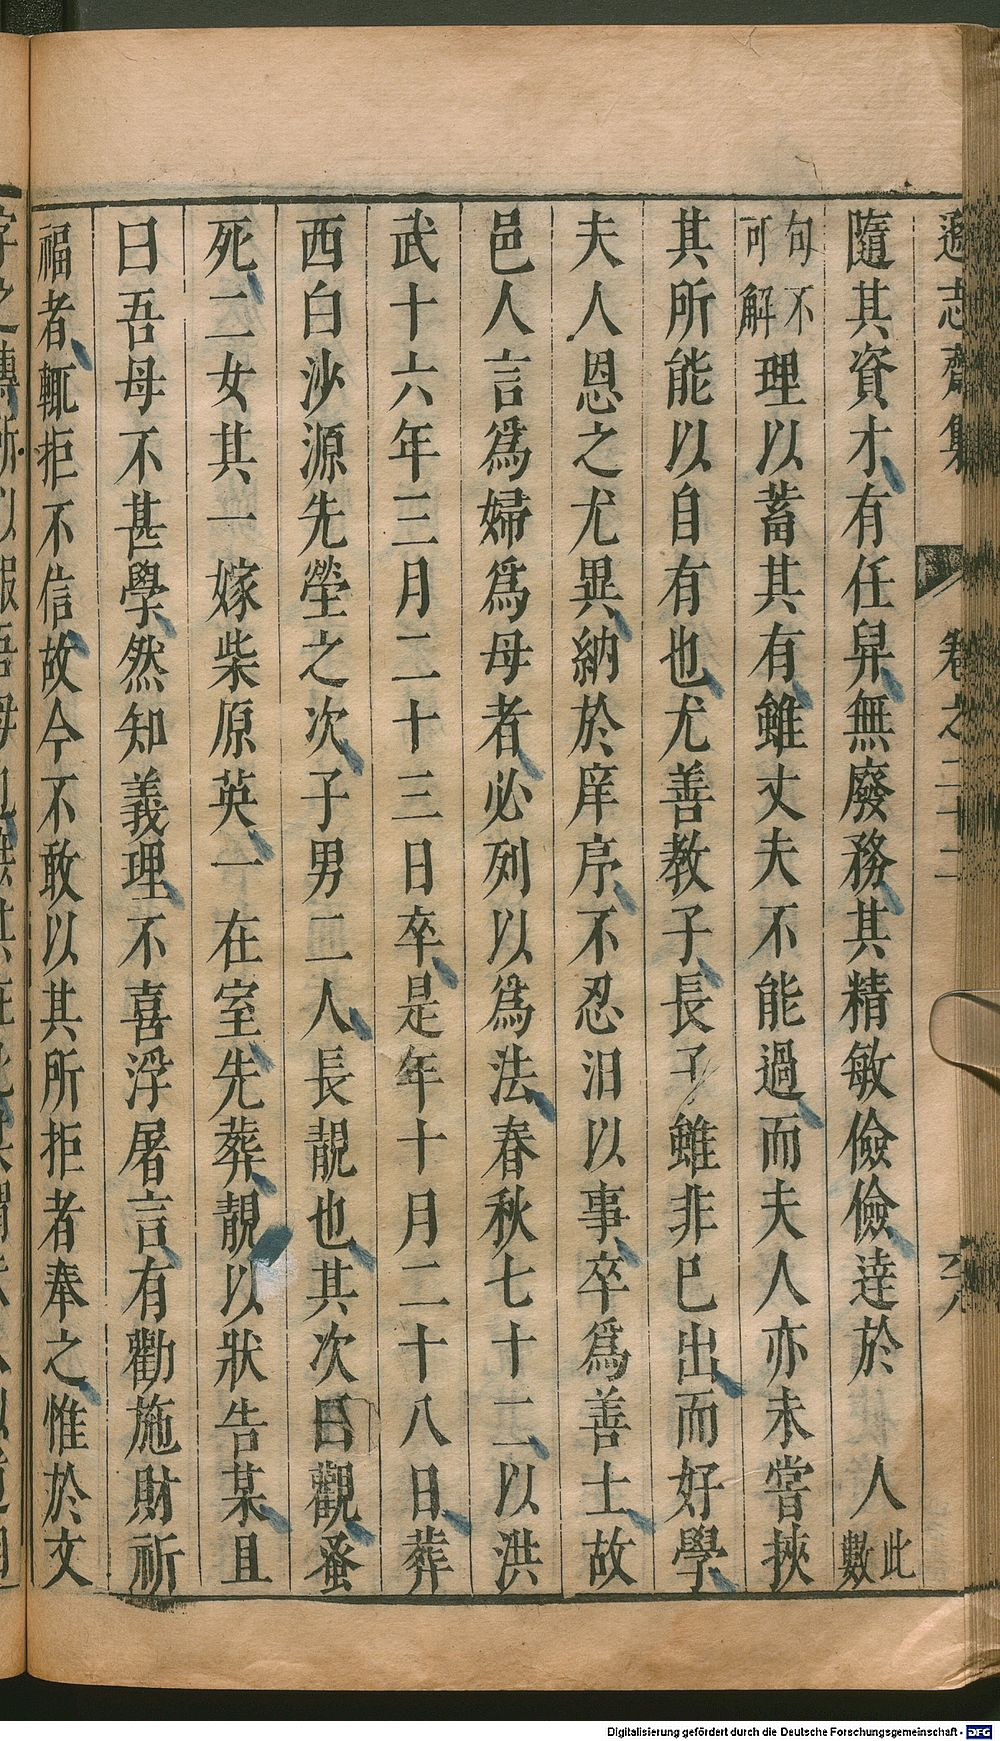 遜志齋集 卷之二十二
隨其資才有任舁無廢務其精敏儉儉達於 人此數
句不可解理以蓄其有雖丈夫不能過而夫人亦未嘗挾
其所能以自有也尤善教子長子雖非已出而好學
夫人恩之尤異納於庠序不忍汨以事卒爲善士故
邑人言爲婦爲母者必列以爲法春秋七十二以洪
武十六年三月二十三日卒是年十月二十八日葬
西白沙源先塋之次子男二人長靚也其次曰觀蚤
死二女其一嫁柴原英一在室先葬靚以狀告某且
曰吾母不甚學然知義理不喜浮屠言有勸施財祈
福者輒拒不信故今不敢以其所拒者奉之惟於文
Digitalisierung gefördert durch die Deutsche Forschungsgemeinschaft - DFG